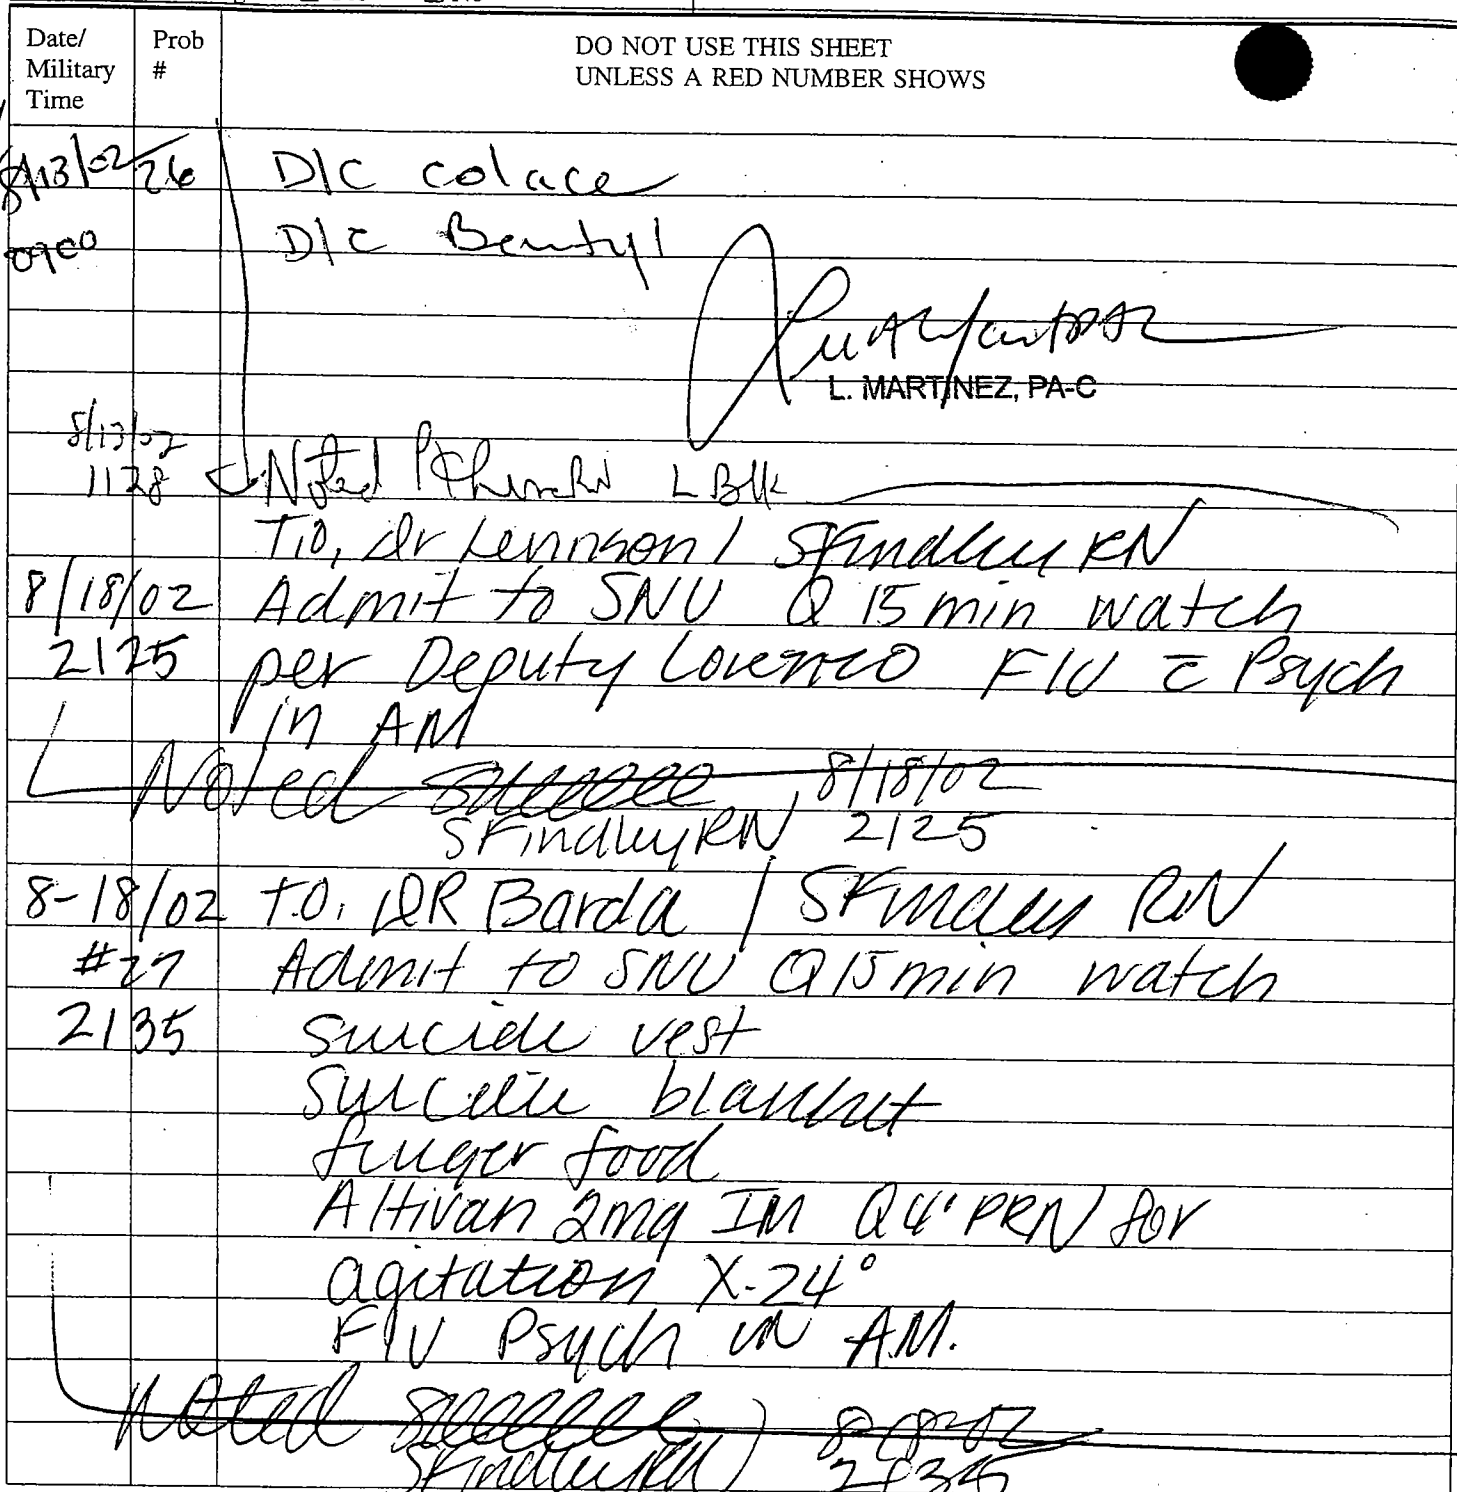 Date/ Military Time
Prob #
DO NOT USE THIS SHEET
UNLESS A RED NUMBER SHOWS
8/13/02 26 D/C colace
0900 D/C Bentyl
L. MARTINEZ, PA-C
8/13/02
1128 Noted RN L Blk
T.O, Dr Lennson / SFindley RN
8/18/02 Admit to SNU Q 15 min watch
2125 per Deputy F/U c̄ Psych
in AM
Noted 8/18/02
SFindley RN 2125
8-18/02 T.O. DR Barda / SFindley RN
#27 Admit to SNU Q15min watch
2135 suicide vest
suicide blanket
finger food
Ativan 2mg IM Q4° PRN for
agitation X-24°
F/U Psych in AM.
Noted 8-18-02
SFindley RN 2135